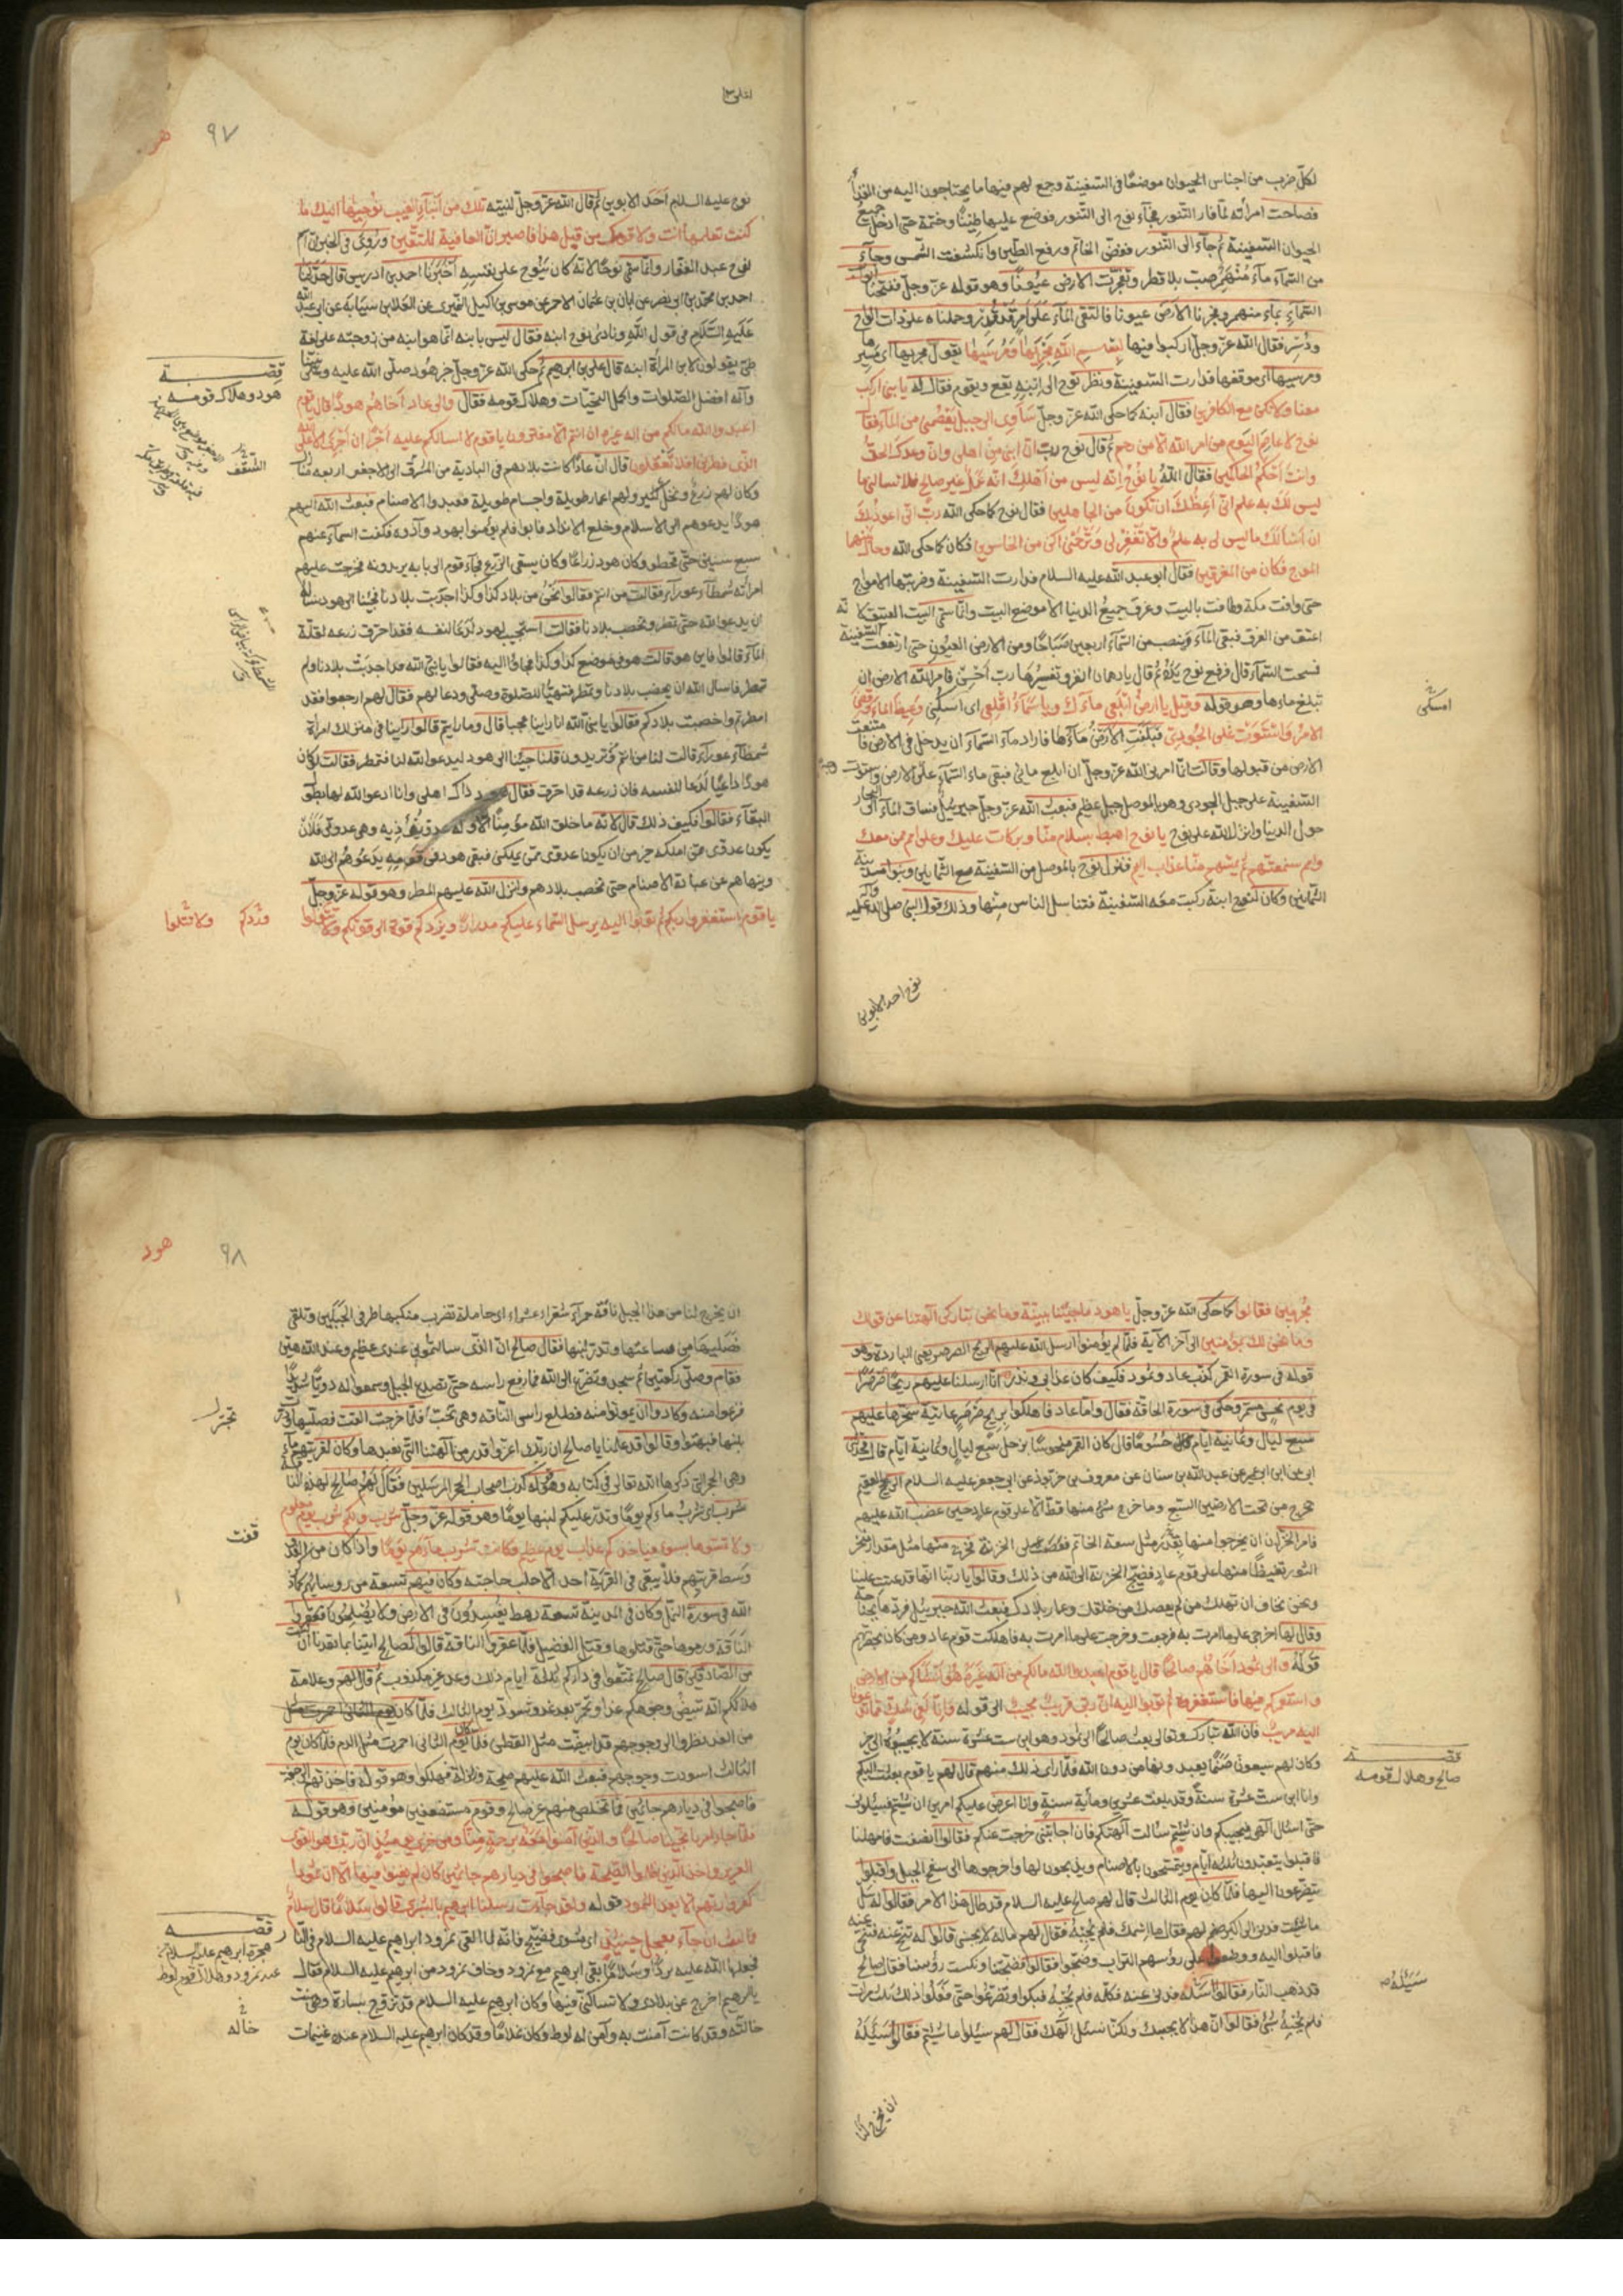 لكلّ ضرب من اجناس الحيوان موضعًا فى السّفينة وجمع لهم فيها ما يحتاجون اليه من الغذآء
فصاحت امرأته لمّا فار التنور فجآء نوح الى التنور فوضع عليها طينًا وختمه حتى ادخل جميع
الحيوان السّفينة ثم جآء الى التنور ففضّ الخاتم ورفع الطّين وانكسفت الشّمس وجآء
من السّمآء مآء منهمر صبّ بلا قطر وتفجّرت الارض عيونًا وهو قوله عزّ وجلّ ففتحنا ابواب
السّمآء بمآء منهمر وفجرنا الارض عيونا فالتقى المآء على امر قد قدر وحملناه على ذات الواح
ودُسُر فقال الله عزّ وجلّ اركبوا فيها بِسْمِ اللهِ مَجْرَيهَا وَمُرْسَيهَا يقول مجريها اى مسيرها
ومرسيها اى موقفها فدارت السّفينة ونظر نوح الى ابنه يقع ويقوم فقال له يا بنىّ اركب
معنا ولا تكن مع الكافرين فقال ابنه كما حكى الله عزّ وجلّ سَآوى الى جبل يعصمنى من المآء فقال
نوح لا عاصم اليوم من امر الله الّا من رحم ثم قال نوح ربّ انّ ابنى من اهلى وانّ وعدك الحقّ
وانت احكم الحاكمين فقال الله يا نوح انّه ليس من اهلك انّه عمل غير صالح فلا تسالنى ما
ليس لك به علم انّى اعظك ان تكون من الجاهلين فقال نوح كما حكى الله ربّ انّى اعوذ بك
ان اسألك ما ليس لى به علم والّا تغفر لى وترحمنى اكن من الخاسرين فكان كما حكى الله وحال بينهما
الموج فكان من المغرقين فقال ابو عبد الله عليه السلام فدارت السّفينة وضربتها الامواج
حتى وافت مكة وطافت بالبيت وغرق جميع الدنيا الا موضع البيت وانّما سمّى البيت العتيق لانّه
اعتق من الغرق فبقى المآء ينصب من السّمآء اربعين صباحًا ومن الارض العيون حتى ارتفعت السّفينة
فسحت السّمآء قال فرفع نوح يده ثم قال يا رهمان اتفر وتفسيرها ربّ احسن فامر الله الارض ان
تبلع ماءها وهو قوله وقيل يا ارض ابلعى مآءك ويا سمآء اقلعى اى امسكى وغيض المآء وقضى
الامر واستوت على الجودى فبلعت الارض مآءها فاراد مآء السّمآء ان يدخل فى الارض فامتنعت
الارض من قبولها وقالت انّما امرنى الله عزّ وجلّ ان ابلع مائى فبقى ماء السّمآء على الارض واستوت
السّفينة على جبل الجودى وهو بالموصل جبل عظيم فبعث الله عزّ وجلّ جبرئيل فساق المآء الى البحار
حول الدنيا وانزل الله على نوح يا نوح اهبط بسلام منّا وبركات عليك وعلى امم ممن معك
وامم سنمتّعهم ثم يمسّهم منّا عذاب اليم فنزل نوح بالموصل من السّفينة مع الثّمانين وبنوا مدينة
الثمانين وكان لنوح ابنة ركبت معه السّفينة فتناسل الناس منها وذلك قول النبى صلى الله عليه وآله
امسكى
نوح احد الابوين
٩٧
هود
نوح عليه السلام احد الابوين ثم قال الله عزّ وجلّ لنبيّه تلك من انبآء الغيب نوحيها اليك ما
كنت تعلمها انت ولا قومك من قبل هذا فاصبر انّ العاقبة للمتّقين وروى فى الخبر انّ اسم
نوح عبد الغفار وانّما سمّى نوحًا لانه كان ينوح على نفسه اخبرنا احمد بن ادريس قال حدثنا
احمد بن محمّد بن ابى نصر عن ابان بن عثمان الاحمر عن موسى بن اكيل النميرى عن العلا بن سيابة عن ابى عبد الله
عليه السّلام فى قول الله ونادى نوح ابنه فقال ليس بابنه انّما هو ابنه من زوجته على لغة
طىّ يقولون لابن المرأة ابنه قال على بن ابراهيم ثم حكى الله عزّ وجلّ خبر هود صلّى الله عليه وعلى نبيّنا
وآله افضل الصّلوات واكمل التحيّات وهلاك قومه فقال والى عاد اخاهم هودًا قال يا قوم
اعبدوا الله مالكم من اله غيره ان انتم الّا مفترون يا قوم لا اسالكم عليه اجرًا ان اجرى الا على
الذّى فطرنى افلا تعقلون قال انّ عادًا كانت بلادهم فى البادية من المشرق الى الاجفر اربعة منازل
وكان لهم زرع ونخل كثير ولهم اعمار طويلة واجسام طويلة فعبدوا الاصنام فبعث الله اليهم
هودًا يدعوهم الى الاسلام وخلع الانداد فابوا فلم يؤمنوا بهود وآذوه فكفت السمآء عنهم
سبع سنين حتّى قحطوا وكان هود زراعًا وكان يسقى الزّرع فجآء قوم الى بابه يريدونه فخرجت عليهم
امرأته شمطآء عورآء فقالت من انتم فقالوا نحن من بلاد كذا وكذا اجدبت بلادنا فجئنا الى هود نساله
ان يدعو الله حتى تمطر وتخصب بلادنا فقالت لو استجيب لهود لدعا لنفسه فقد احترق زرعه لقلّة
المآء قالوا فاين هو قالت هو فى موضع كذا وكذا فجاؤا اليه فقالوا يا نبىّ الله قد اجدبت بلادنا ولم
تمطر فاسال الله ان يخصب بلادنا وتمطر فتهيّا للصّلوة وصلّى ودعا لهم فقال لهم ارجعوا فقد
امطرتم واخصبت بلادكم فقالوا يا نبىّ الله انا راينا عجبا قال وما رايتم قالوا راينا فى منزلك امراة
شمطآء عورآء قالت لنا من انتم وتريدون قلنا جئنا الى هود ليدعو الله لنا فنمطر فقالت لو كان
هودًا داعيًا لدعا لنفسه فان زرعه قد احترق فقال هود ذاك اهلى وانا ادعو الله لها بطول
البقآء فقالوا فكيف ذلك قال لانّه ما خلق الله مؤمنًا الّا وله عدوّ يؤذيه وهى عدوّتى فلان
يكون عدوّى ممن املكه خير من ان يكون عدوّى ممّن يملكنى فبقى هود فى قومه يدعوهم الى الله
وينهاهم عن عبادة الاصنام حتى تخصب بلادهم وانزل الله عليهم المطر وهو قوله عزّ وجلّ
يا قوم استغفروا ربكم ثم توبوا اليه يرسل السّماء عليكم مدرارًا ويزدكم قوّة الى قوّتكم ولا تتولّوا
قصّة
هود وهلاك قومه
هود
٩٨
مجرمين فقالوا كما حكى الله عزّ وجلّ يا هود ما جئتنا ببيّنة وما نحن بتاركى آلهتنا عن قولك
وما نحن لك بمؤمنين الى آخر الآية فلمّا لم يؤمنوا ارسل الله عليهم الريح الصرصر يعنى الباردة وهو
قوله فى سورة القمر كذّبت عاد وثمود فكيف كان عذابى ونذر انّا ارسلنا عليهم ريحًا صرصرًا
فى يوم نحس مستمر وحكى فى سورة الحاقّة فقال وامّا عاد فاهلكوا بريح صرصر عاتية سخّرها عليهم
سبع ليال وثمانية ايّام حسومًا قال كان القمر منحوسًا بزحل سبع ليال وثمانية ايّام قال فحدّثنى
ابى عن ابن ابى عمير عن عبد الله بن سنان عن معروف بن خرّبوذ عن ابى جعفر عليه السلام الريح العقيم
تخرج من تحت الارضين السّبع وما خرج شئ منها قطّ الّا على قوم عاد حين غضب الله عليهم
فامر الخزّان ان يخرجوا منها بقدر مثل سعة الخاتم فعصت على الخزنة فخرج منها مثل مقدار منخر
الثّور تغيّظًا منها على قوم عاد فضجّ الخزنة الى الله من ذلك وقالوا يا ربّنا انّها قد عتت علينا
ونحن نخاف ان تهلك من لم يعصك من خلقك وعمار بلادك فبعث الله جبرئيل فردّها بجناحه
وقال لها اخرجى على ما امرت به فرجعت وخرجت على ما امرت به فاهلكت قوم عاد ومن كان بحضرتهم
قوله والى ثمود اخاهم صالحًا قال يا قوم اعبدوا الله مالكم من اله غيره هو انشاكم من الارض
واستعمركم فيها فاستغفروه ثم توبوا اليه انّ ربّى قريب مجيب الى قوله واننا لفى شكّ ممّا تدعونا
اليه مريب فانّ الله تبارك وتعالى بعث صالحًا الى ثمود وهو ابن ستّ عشرة سنة لا يجيبوه الى خير
وكان لهم سبعون صنمًا يعبدونها من دون الله فلمّا راى ذلك منهم قال لهم يا قوم بعثت اليكم
وانا ابن ستّ عشرة سنة وقد بلغت عشرين ومأية سنة وانا اعرض عليكم امرين ان شئتم فسئلونى
حتّى اسئل الهى فيجيبكم وان شئتم سئالت آلهتكم فان اجابتنى خرجت عنكم فقالوا انصفت فامهلنا
فاقبلوا يتعبّدون ثلثة ايّام ويتمسّحون بالاصنام ويذبحون لها واخرجوها الى سفح الجبل واقبلوا
يتضرّعون اليها فلمّا كان يوم الثالث قال لهم صالح عليه السلام قد طال هذا الامر فقالوا له سل
ما شئت فدنى الى اكبر صنم لهم فقال ما اسمك فلم يجبه فقال لهم ماله لا يجيبنى قالوا له تنحّ عنه فتنحّى عنه
فاقبلوا اليه ووضعوا على رؤسهم التراب وضجّوا فقالوا فضحتنا ونكست رؤسنا فقال صالح
قد ذهب النّهار فقالوا اسئله فدنى عنه فكلّمه فلم يجبه فبكوا وتضرّعوا حتّى فعلوا ذلك ثلث مرات
فلم يجبه بشئ فقالوا انّ هذا لا يجيبك ولكنّا نسئل الهك فقال لهم سئلوا ما شئتم فقالوا سئله
قصّة
صالح وهلاك قومه
ان يخرج لنا
ان يخرج لنا من هذا الجبل ناقة حمرآء شقرآء عشراء اى حاملة تضرب منكبيها طرفى الجبلين وتلقى
فصيلها من ساعتها وتدر لبنها فقال صالح انّ الذى سالتمونى عندى عظيم وعند الله هيّن
فقام وصلّى ركعتين ثم سجد وتضرّع الى الله فما رفع راسه حتى تصدّع الجبل وسمعوا له دويًّا شديدًا
فزعوا منه وكادوا ان يموتوا منه فطلع راس الناقة وهى تجتر فلمّا خرجت القت فصيلها ودرّت
بلبنها فبهتوا وقالوا قد علمنا يا صالح ان ربّك اعزّ واقدر من آلهتنا التى نعبدها وكان لقريتهم مآء
وهى الحجر التى ذكرها الله تعالى فى كتابه وهو قوله كذب اصحاب الحجر المرسلين فقال لهم صالح لهذه النّاقة
شرب اى تشرب ماءكم يومًا وتدر عليكم لبنها يومًا وهو قوله عزّ وجلّ شرب ولكم شرب يوم معلوم
ولا تمسّوها بسوء فياخذكم عذاب يوم عظيم فكانت تشرب مآءهم يومًا واذا كان من الغد
وسط قريتهم فلا يبقى فى القرية احد الا حلب حاجته وكان فيهم تسعة من رؤسائهم كما ذكر
الله فى سورة النمل وكان فى المدينة تسعة رهط يفسدون فى الارض ولا يصلحون فعقروا
الناقة ورموها حتّى قتلوها وقتلوا الفصيل فلمّا عقروا الناقة قالوا لصالح ايتنا بما تعدنا ان كنت
من الصّادقين قال صالح تمتّعوا فى داركم ثلثة ايام ذلك وعد غير مكذوب ثم قال لهم وعلامة
هلاككم انّه تبيضّ وجوهكم غدًا وتحمرّ بعد غد وتسودّ يوم الثالث فلمّا كان
من الغد نظروا الى وجوههم قد ابيضّت مثل القطن فلمّا كان يوم الثانى احمرت مثل الدم فلمّا كان يوم
الثالث اسودت وجوههم فبعث الله عليهم صيحة وزلزلة فهلكوا وهو قوله فاخذتهم الرجفة
فاصبحوا فى ديارهم جاثمين فما تخلّص منهم غير صالح وقوم مستضعفين مؤمنين وهو قوله
فلمّا جاء امرنا نجّينا صالحًا والذين آمنوا معه برحمة منّا ومن خزى يومئذ انّ ربّك هو القوىّ
العزيز واخذ الذين ظلموا الصّيحة فاصبحوا فى ديارهم جاثمين كان لم يغنوا فيها الا انّ ثمودا
كفروا ربهم الا بعدًا لثمود قوله ولقد جآءت رسلنا ابرهيم بالبشرى قالوا سلامًا قال سلام
فما لبث ان جآء بعجل حنيذ اى مشوىّ نضيج فانّه لمّا القى نمرود ابراهيم عليه السلام فى النّار
فجعلها الله عليه بردًا وسلامًا بقى ابرهيم مع نمرود وخاف نمرود من ابرهيم عليه السلام فقال
يا ابرهيم اخرج عن بلادى ولا تساكنّى فيها وكان ابرهيم عليه السلام قد تزوّج بسارة وهى بنت
خالته وقد كانت آمنت به وآمن له لوط وكان غلامًا وقد كان ابرهيم عليه السلام عنده غنيمات
تجترّ
قصّة
هجرة ابرهيم عليه السلام من
عند نمرود وهلاك قوم لوط
خاله